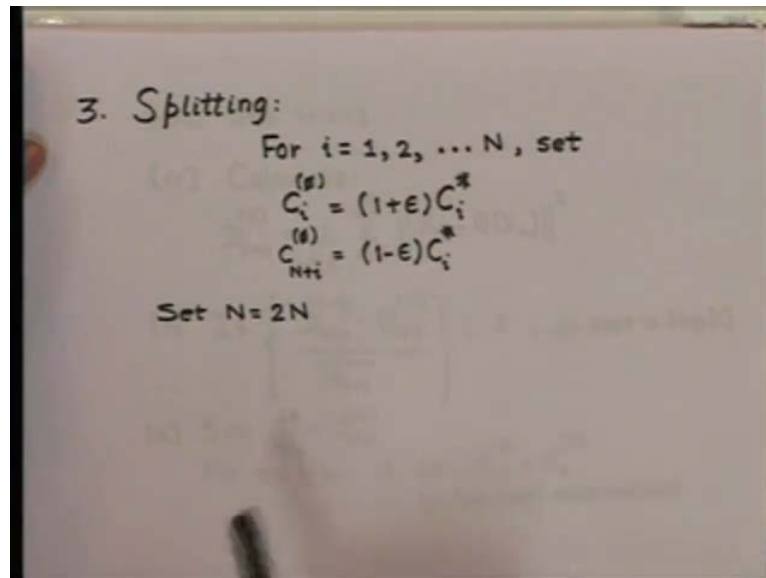 3. Splitting:
For i = 1, 2, ... N, set
C_i^(0) = (1+ϵ)C_i^*
C_{N+i}^(0) = (1-ϵ)C_i^*
Set N = 2N